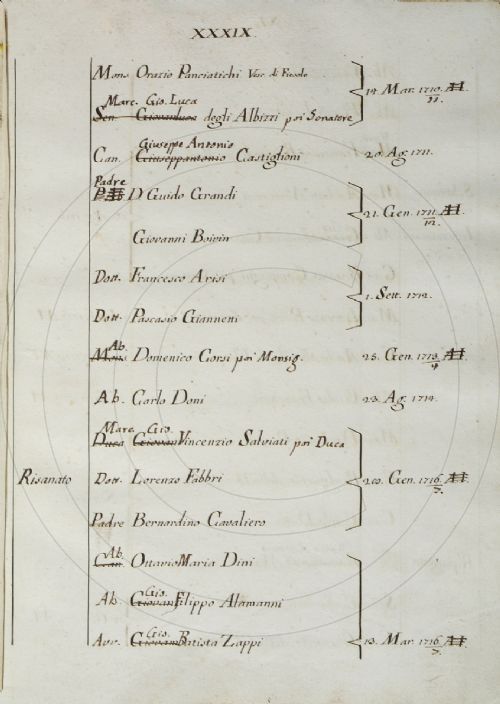 XXXIX.
Mons Orazio Panciatichi Vesc. di Fiesole
14. Mar. 1710. 11.
Marc. Gio. Luca
Sen. Giovanluca degli Albizzi poi Senatore
Giuseppe Antonio
Can. Giuseppantonio Castiglioni 20. Ag. 1711.
Padre
D Guido Grandi
21. Gen. 1711. 12.
Giovanni Boivin
Dott. Francesco Arisi
1. Sett. 1712.
Dott. Pascasio Giannetti
Ab.
Mons Domenico Corsi poi Monsig. 25. Gen. 1713. 4
Ab. Carlo Doni 23. Ag. 1714.
Marc. Gio.
Duca Giovan Vincenzio Salviati poi Duca
Risanato Dott. Lorenzo Fabbri 20. Gen. 1716 7.
Padre Bernardino Cavaliero
Ab.
Can. Ottavio Maria Dini
Gio.
Ab. Giovan Filippo Alamanni
Gio.
Avv. Giovam Batista Zappi 13. Mar. 1716 7.